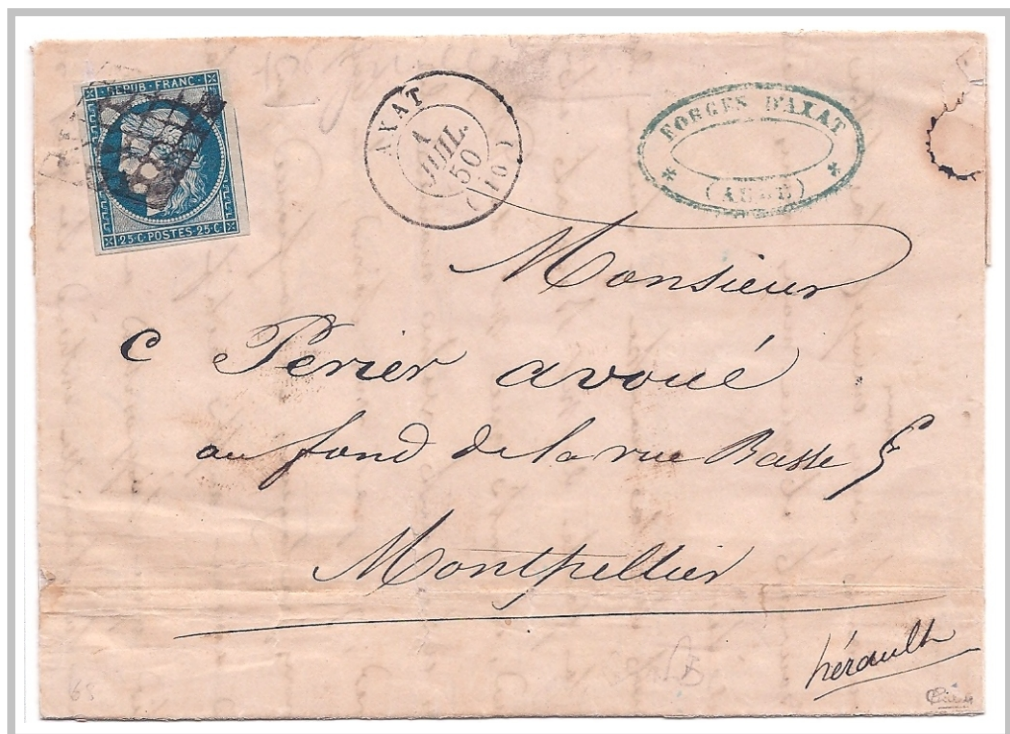 REPUB·FRANC·
25·C·POSTES·25·C
AXAT (10)
1
JUIL.
50
FORGES D'AXAT
(AUDE)
Monsieur
C Perier avoué
au fond de la rue Basse 5
Montpellier
hérault
65